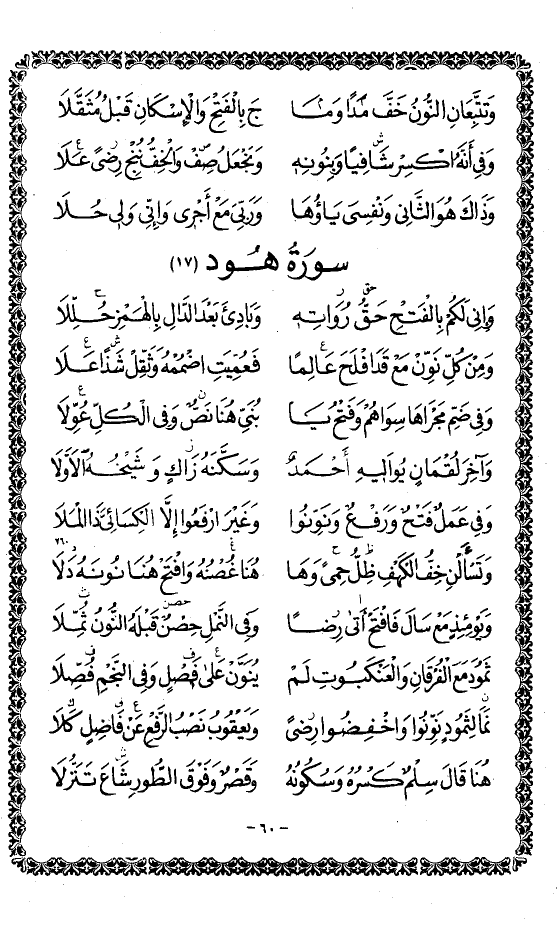 وَتَتَّبِعَانِ النُّونُ خَفَّ مَدًا وَمَا جَ بِالْفَتْحِ وَالْإِسْكَانِ قَبْلُ مُثَقَّلَا
وَفِي أَنَّهُ اكْسِرْ شَافِيًا وَبِنُونِهِ وَنَجْعَلُ صِفْ وَالْخِفُّ نُنْجِ رِضًى عَلَا
وَذَاكَ هُوَ الثَّانِي وَنَفْسِي يَاؤُهَا وَرَبِّي مَعْ أَجْرِي وَإِنِّي وَلِي حُلَا
سورة هود (١٧)
وَإِنِي لَكُمْ بِالْفَتْحِ حَقُّ رُوَاتِهِ وَبَادِئَ بَعْدَ الدَّالِ بِالْهَمْزِ حُلِّلَا
وَمِنْ كُلِّ نَوِّنْ مَعْ قَدَ افْلَحَ عَالِمًا فَعُمِّيَتِ اضْمُمْهُ وَثَقِّلْ شَذًا عَلَا
وَفِي ضَمِّ مَجْرَاهَا سِوَاهُمْ وَفَتْحُ يَا بُنَيِّ هُنَا نَصٌّ وَفِي الْكُلِّ عُوِّلَا
وَآخِرَ لُقْمَانٍ يُوَالِيهِ أَحْمَدٌ وَسَكَّنَهُ زَاكٍ وَشَيْخُهُ الْأَوَّلَا
وَفِي عَمَلٌ فَتْحٌ وَرَفْعٌ وَنَوِّنُوا وَغَيْرَ ارْفَعُوا إِلَّا الْكِسَائِيَّ ذَا الْمَلَا
وَتَسْأَلْنِ خِفُّ الْكَهْفِ ظِلُّ حِمًى وَهَا هُنَا غُصْنُهُ وَافْتَحْ هُنَا نُونَهُ دَلَا ٧٦٠
وَيَوْمَئِذٍ مَعْ سَالَ فَافْتَحْ أَتَى رِضًا وَفِي النَّمْلِ حِصْنٌ قَبْلَهُ النُّونُ ثُمِّلَا
ثَمُودَ مَعَ الْفُرْقَانِ وَالْعَنْكَبُوتِ لَمْ يُنَوَّنْ عَلَى فَصْلٍ وَفِي النَّجْمِ فُصِّلَا
نَمَا لِثَمُودٍ نَوِّنُوا وَاخْفِضُوا رِضًى وَيَعْقُوبُ نَصْبُ الرَّفْعِ عَنْ فَاضِلٍ كَلَا
هُنَا قَالَ سِلْمٌ كَسْرُهُ وَسُكُونُهُ وَقَصْرٌ وَفَوْقَ الطُّورِ شَاعَ تَنَزُّلَا
- ٦٠ -